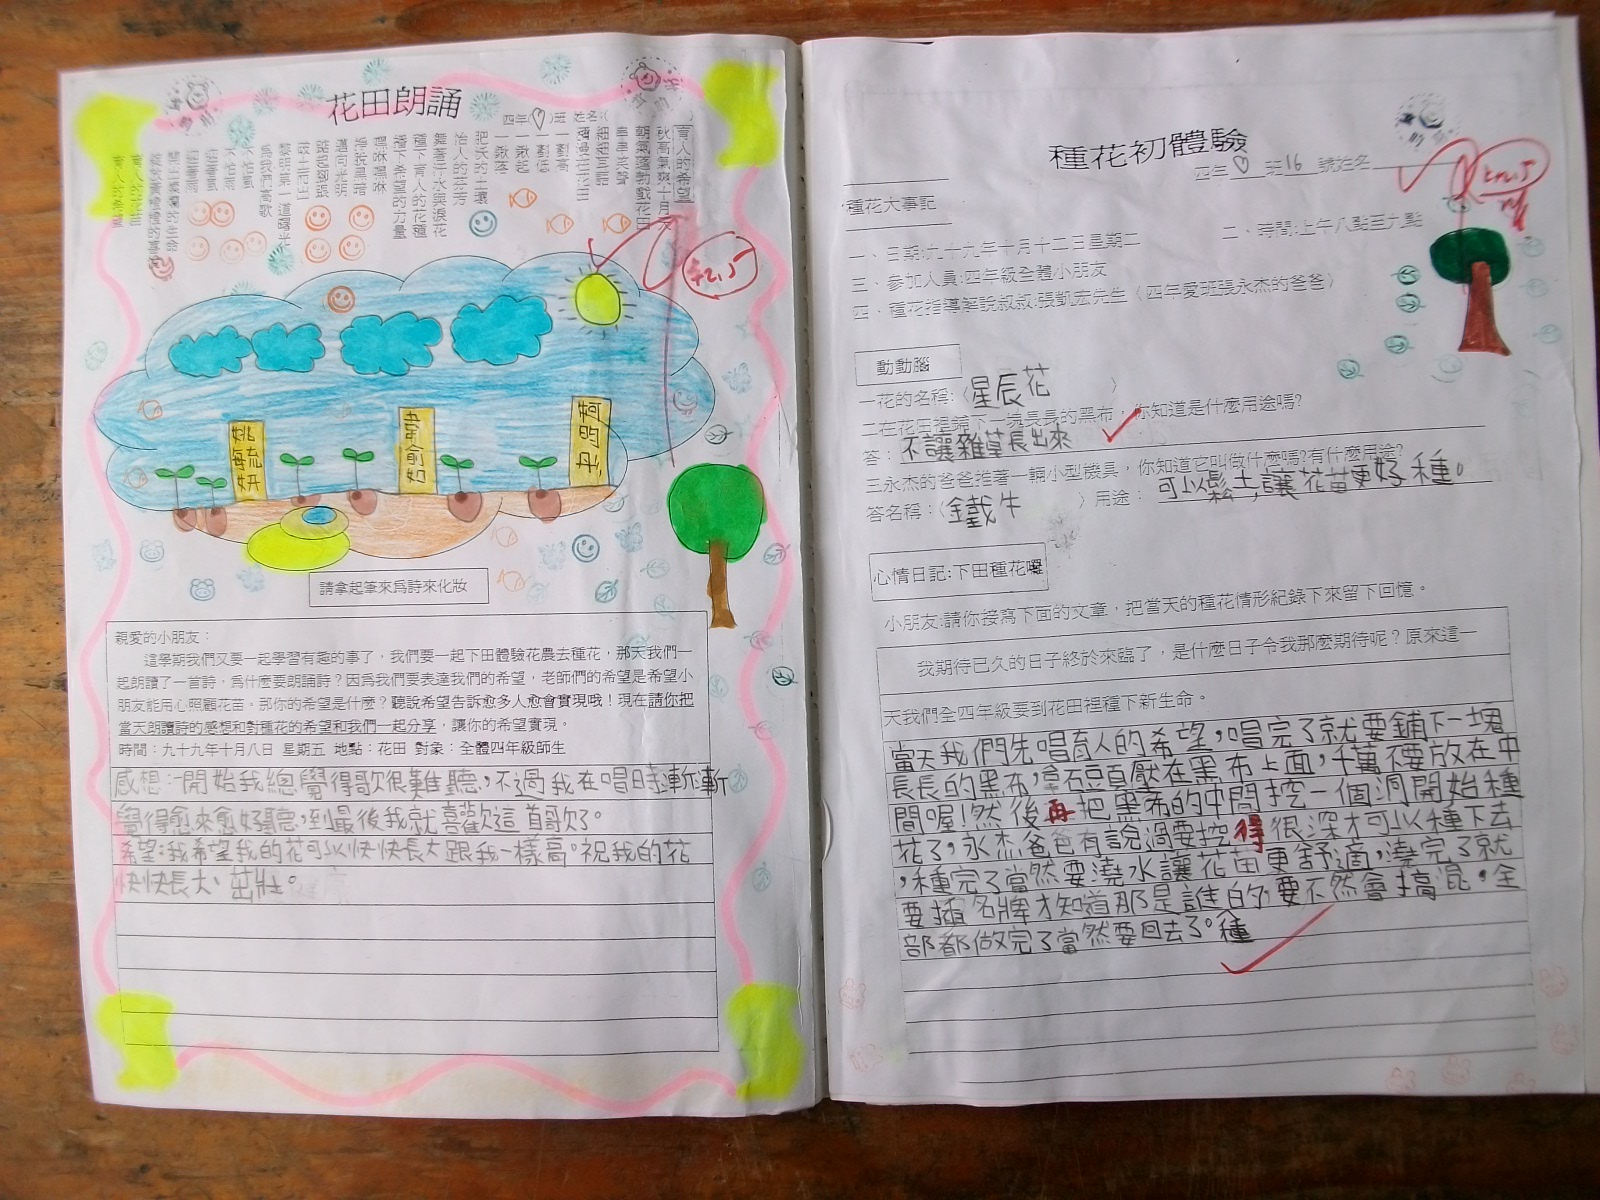 花田朗誦
四年(♡)班 姓名:(
育人的希望
秋高氣爽十月天
朝氣蓬勃戲花田
串串笑聲
細細耳語
瀰漫在花田
一劃高
一劃低
一鍬起
一鍬落
把沃的土壤
怡人的芬芳
舞著汗水與淚花
種下育人的花種
播下希望的力量
嘿咻嘿咻
掙脫黑暗
邁向光明
為我們高歌
不怕風
不怕雨
姚毓妍
韋俞如
請拿起筆來為詩來化妝
親愛的小朋友：
這學期我們又要一起學習有趣的事了，我們要一起下田體驗花農去種花，那天我們一
起朗讀了一首詩，為什麼要朗誦詩？因為我們要表達我們的希望，老師們的希望是希望小
朋友能用心照顧花苗。那你的希望是什麼？聽說希望告訴愈多人愈會實現哦！現在請你把
當天朗讀詩的感想和對種花的希望和我們一起分享，讓你的希望實現。
時間：九十九年十月八日 星期五 地點：花田 對象：全體四年級師生
感想:一開始我總覺得歌很難聽，不過我在唱時漸漸
覺得愈來愈好聽，到最後我就喜歡這首歌了。
希望:我希望我的花可以快快長大跟我一樣高。祝我的花
快快長大、茁壯。
種花初體驗
四年♡班16號姓名
種花大事記
一、日期:九十九年十月十二日星期二
二、時間:上午八點至九點
三、參加人員:四年級全體小朋友
四、種花指導解說叔叔:張凱宏先生〈四年愛班張永杰的爸爸〉
動動腦
一花的名稱:〈星辰花 〉
二在花田裡鋪下一塊長長的黑布，你知道是什麼用途嗎?
答：不讓雜草長出來
三永杰的爸爸推著一輛小型機具，你知道它叫做什麼嗎?有什麼用途?
答名稱：〈鐵牛 〉用途：可以鬆土,讓花苗更好種。
心情日記:下田種花囉
小朋友:請你接寫下面的文章，把當天的種花情形紀錄下來留下回憶。
我期待已久的日子終於來臨了，是什麼日子令我那麼期待呢？原來這一
天我們全四年級要到花田裡種下新生命。
當天我們先唱育人的希望，唱完了就要鋪下一塊
長長的黑布，拿石頭壓在黑布上面，千萬不要放在中
間喔!然後再把黑布的中間挖一個洞開始種
花了，永杰爸爸有說過要挖得很深才可以種下去
，種完了當然要澆水讓花苗更舒適，澆完了就
要插名牌才知道那是誰的，要不然會搞混。全
部都做完了當然要回去了。種